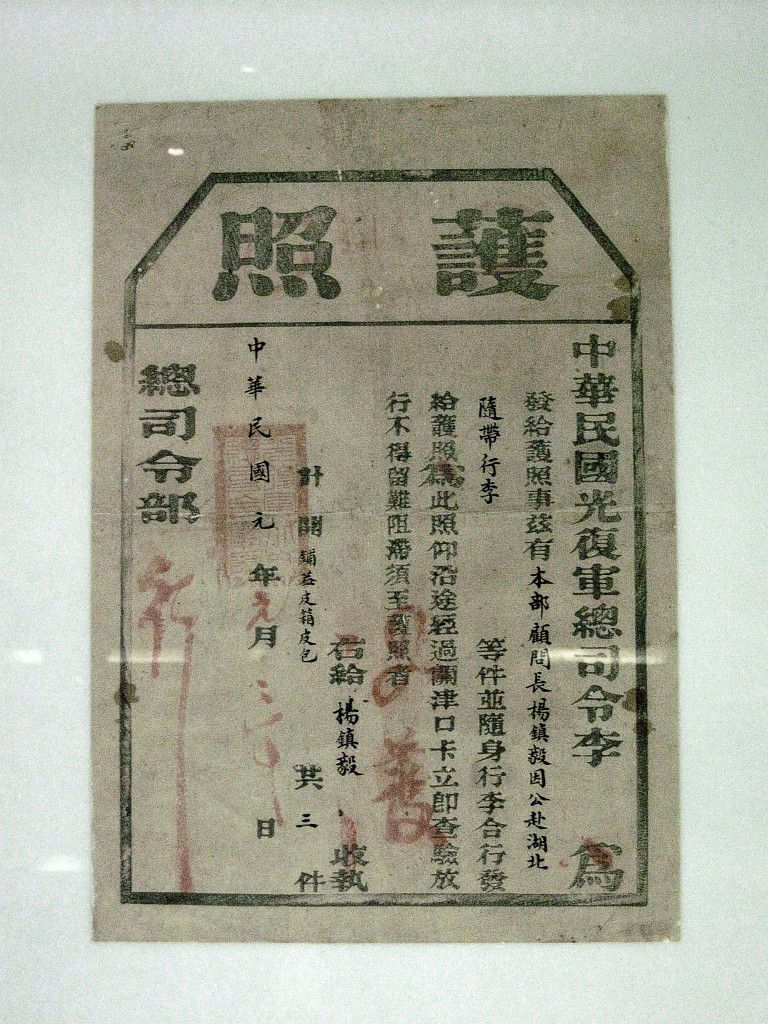 護照
中華民國光復軍總司令李 為
發給護照事茲有本部顧問長楊鎮毅因公赴湖北
隨帶行李 等件並隨身行李合行發
給護照為此照仰沿途經過關津口卡立即查驗放
行不得留難阻滯須至護照者
右給楊鎮毅 收執
計開鋪蓋皮箱皮包 共三件
中華民國元年元月 日
總司令部